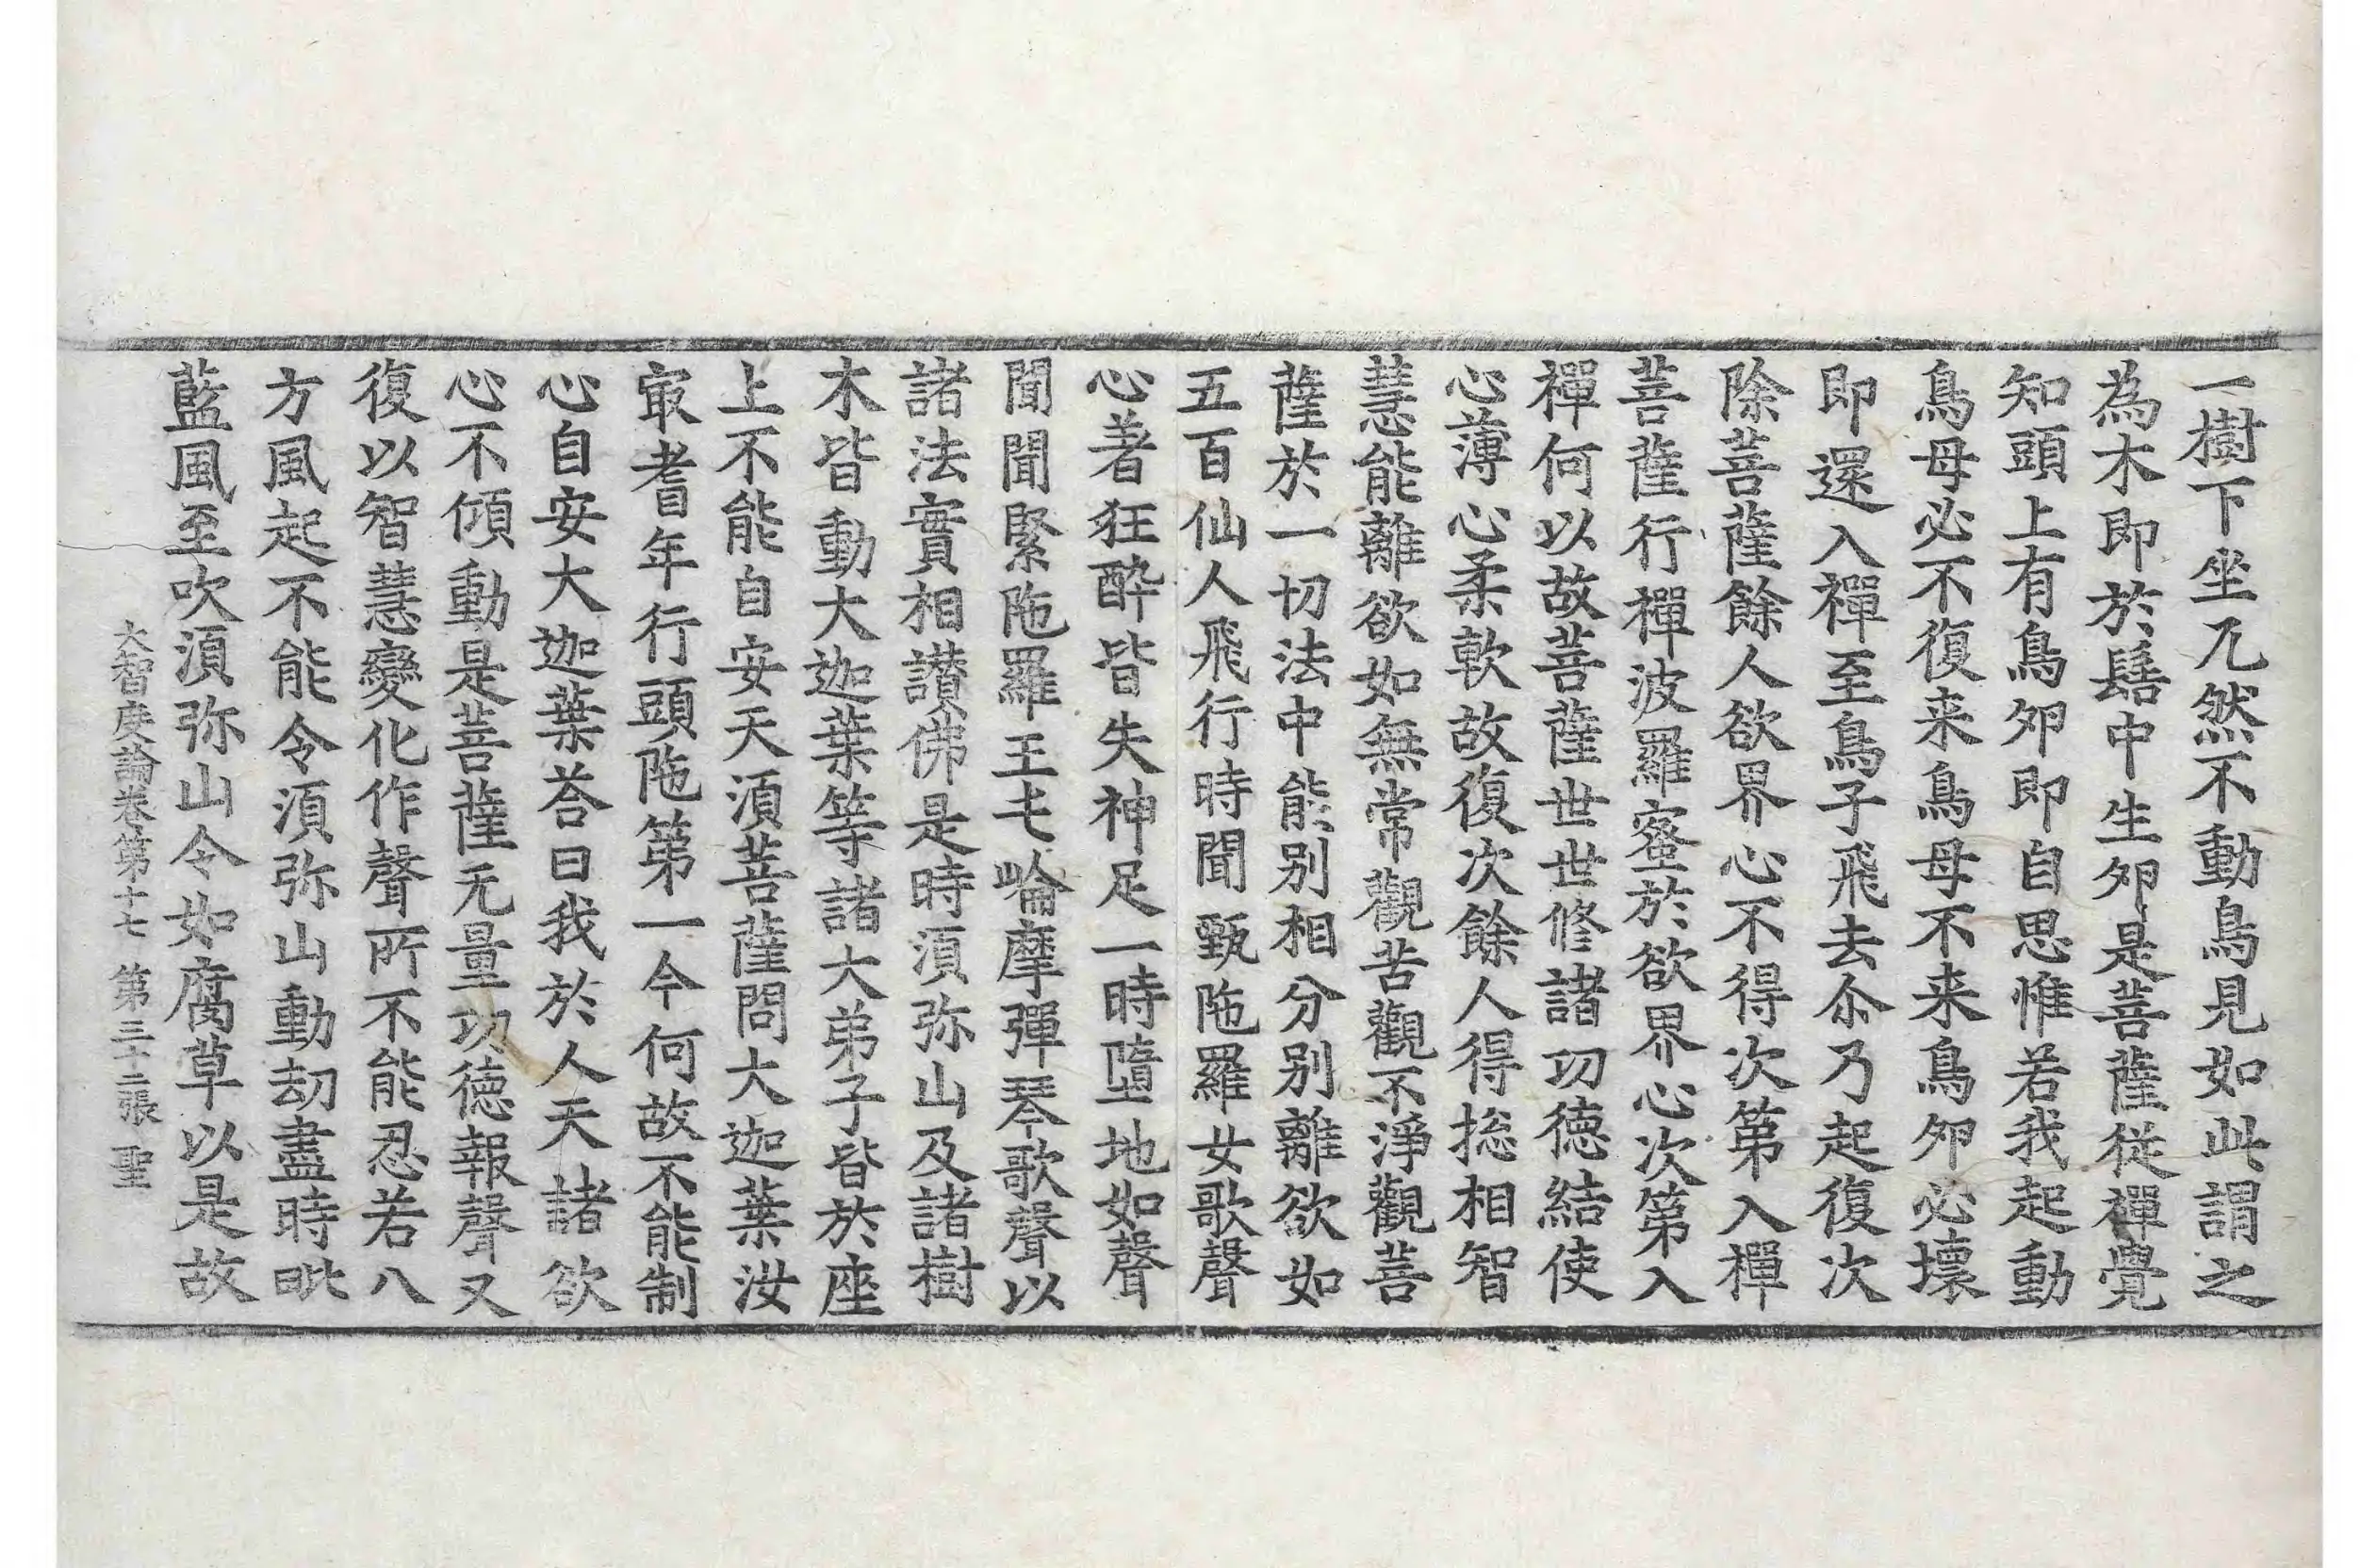 一樹下坐兀然不動鳥見如此謂之
為木即於髻中生夘是菩薩從禪覺
知頭上有鳥夘即自思惟若我起動
鳥母必不復来鳥母不来鳥夘必壞
即還入禪至鳥子飛去尒乃起復次
除菩薩餘人欲界心不得次第入禪
菩薩行禪波羅蜜於欲界心次第入
禪何以故菩薩世世修諸功德結使
心薄心柔軟故復次餘人得揔相智
慧能離欲如無常觀苦觀不淨觀菩
薩於一切法中能別相分別離欲如
五百仙人飛行時聞甄陁羅女歌聲
心著狂醉皆失神足一時墮地如聲
聞聞緊陁羅王屯崘摩彈琴歌聲以
諸法實相讃佛是時湏弥山及諸樹
木皆動大迦葉等諸大弟子皆於座
上不能自安天湏菩薩問大迦葉汝
㝡耆年行頭陁第一今何故不能制
心自安大迦葉荅曰我於人天諸欲
心不傾動是菩薩无量功德報聲又
復以智慧變化作聲所不能忍若八
方風起不能令湏弥山動劫盡時毗
藍風至吹湏弥山令如腐草以是故
大智度論卷第十七 第三十二張 聖